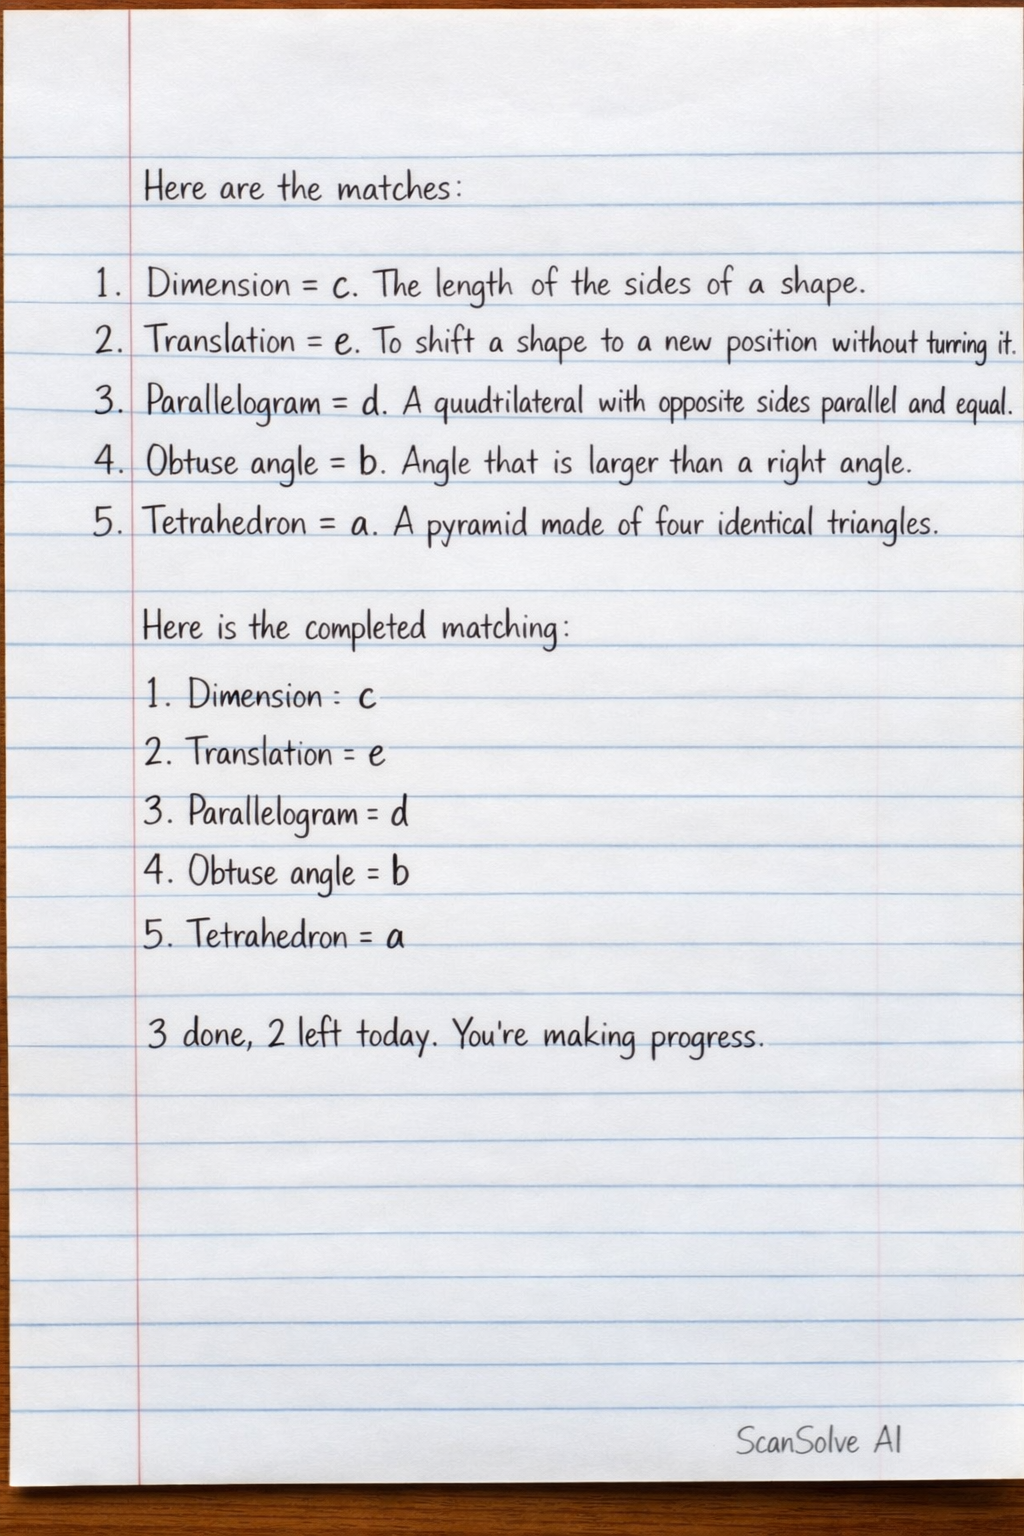 Here are the matches:
1. Dimension = c. The length of the sides of a shape.
2. Translation = e. To shift a shape to a new position without turring it.
3. Parallelogram = d. A quudtilateral with opposite sides parallel and equal.
4. Obtuse angle = b. Angle that is larger than a right angle.
5. Tetrahedron = a. A pyramid made of four identical triangles.
Here is the completed matching:
1. Dimension : c
2. Translation = e
3. Parallelogram = d
4. Obtuse angle = b
5. Tetrahedron = a
3 done, 2 left today. You're making progress.
ScanSolve AI